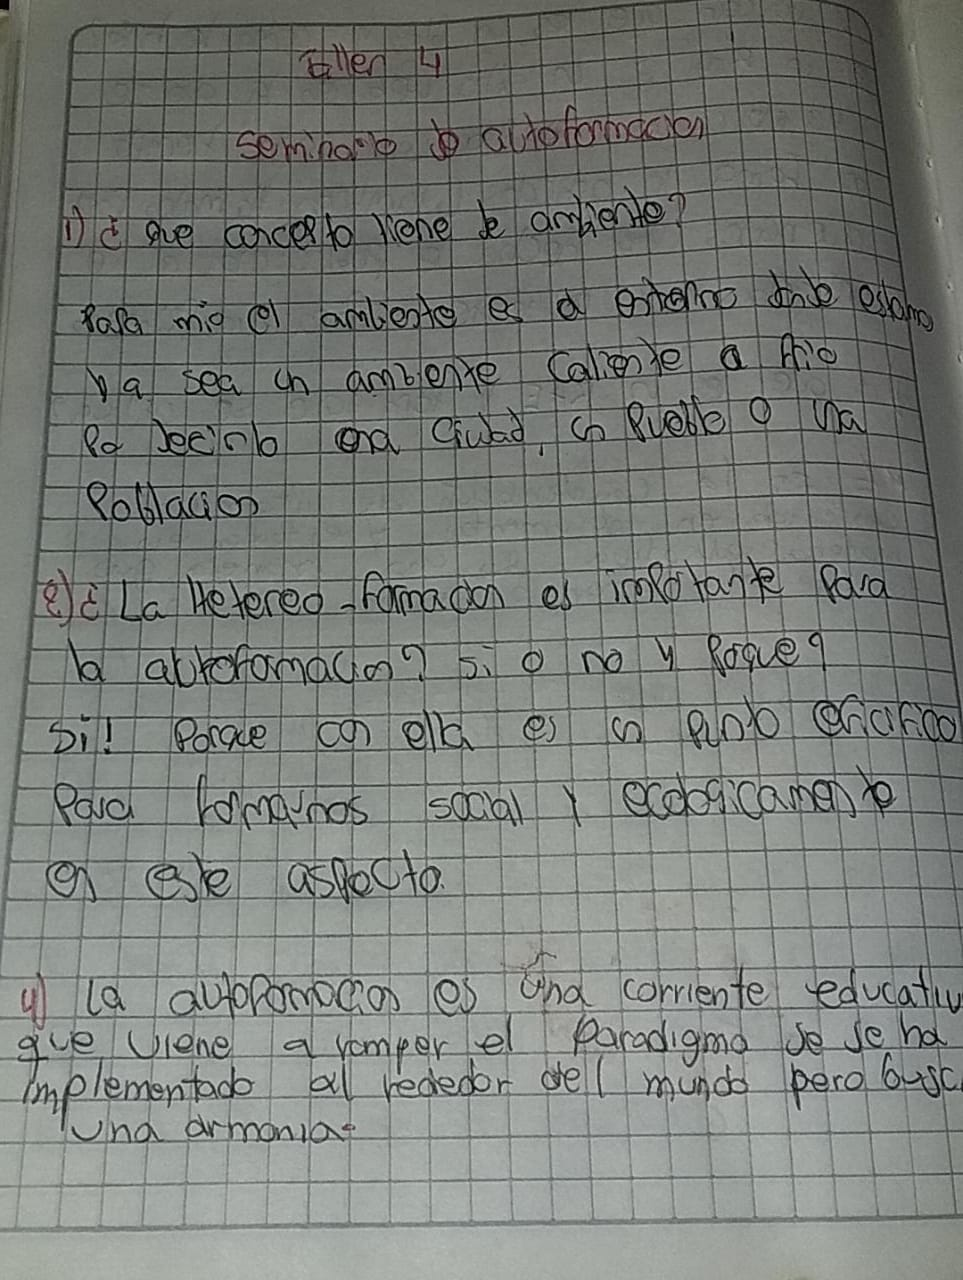 taller 4
seminario de autoformacion
1) ¿ que concepto tiene de ambiente?
Para mio el ambiente es el entorno donde estamo
ya sea un ambiente caliente o frio
Por decirlo una ciudad, un Pueblo o una
Poblacion
2) ¿ La Hetereo-formacion es importante Para
la autoformacion? si o no y Porque?
Si! Porque con ella es un punto
Para formarnos social y ecologicamente
en este aspecto.
4) la autoformacion es una corriente educativ
que viene a romper el paradigma se se ha
implementado al rededor del mundo pero busc
una armonia.